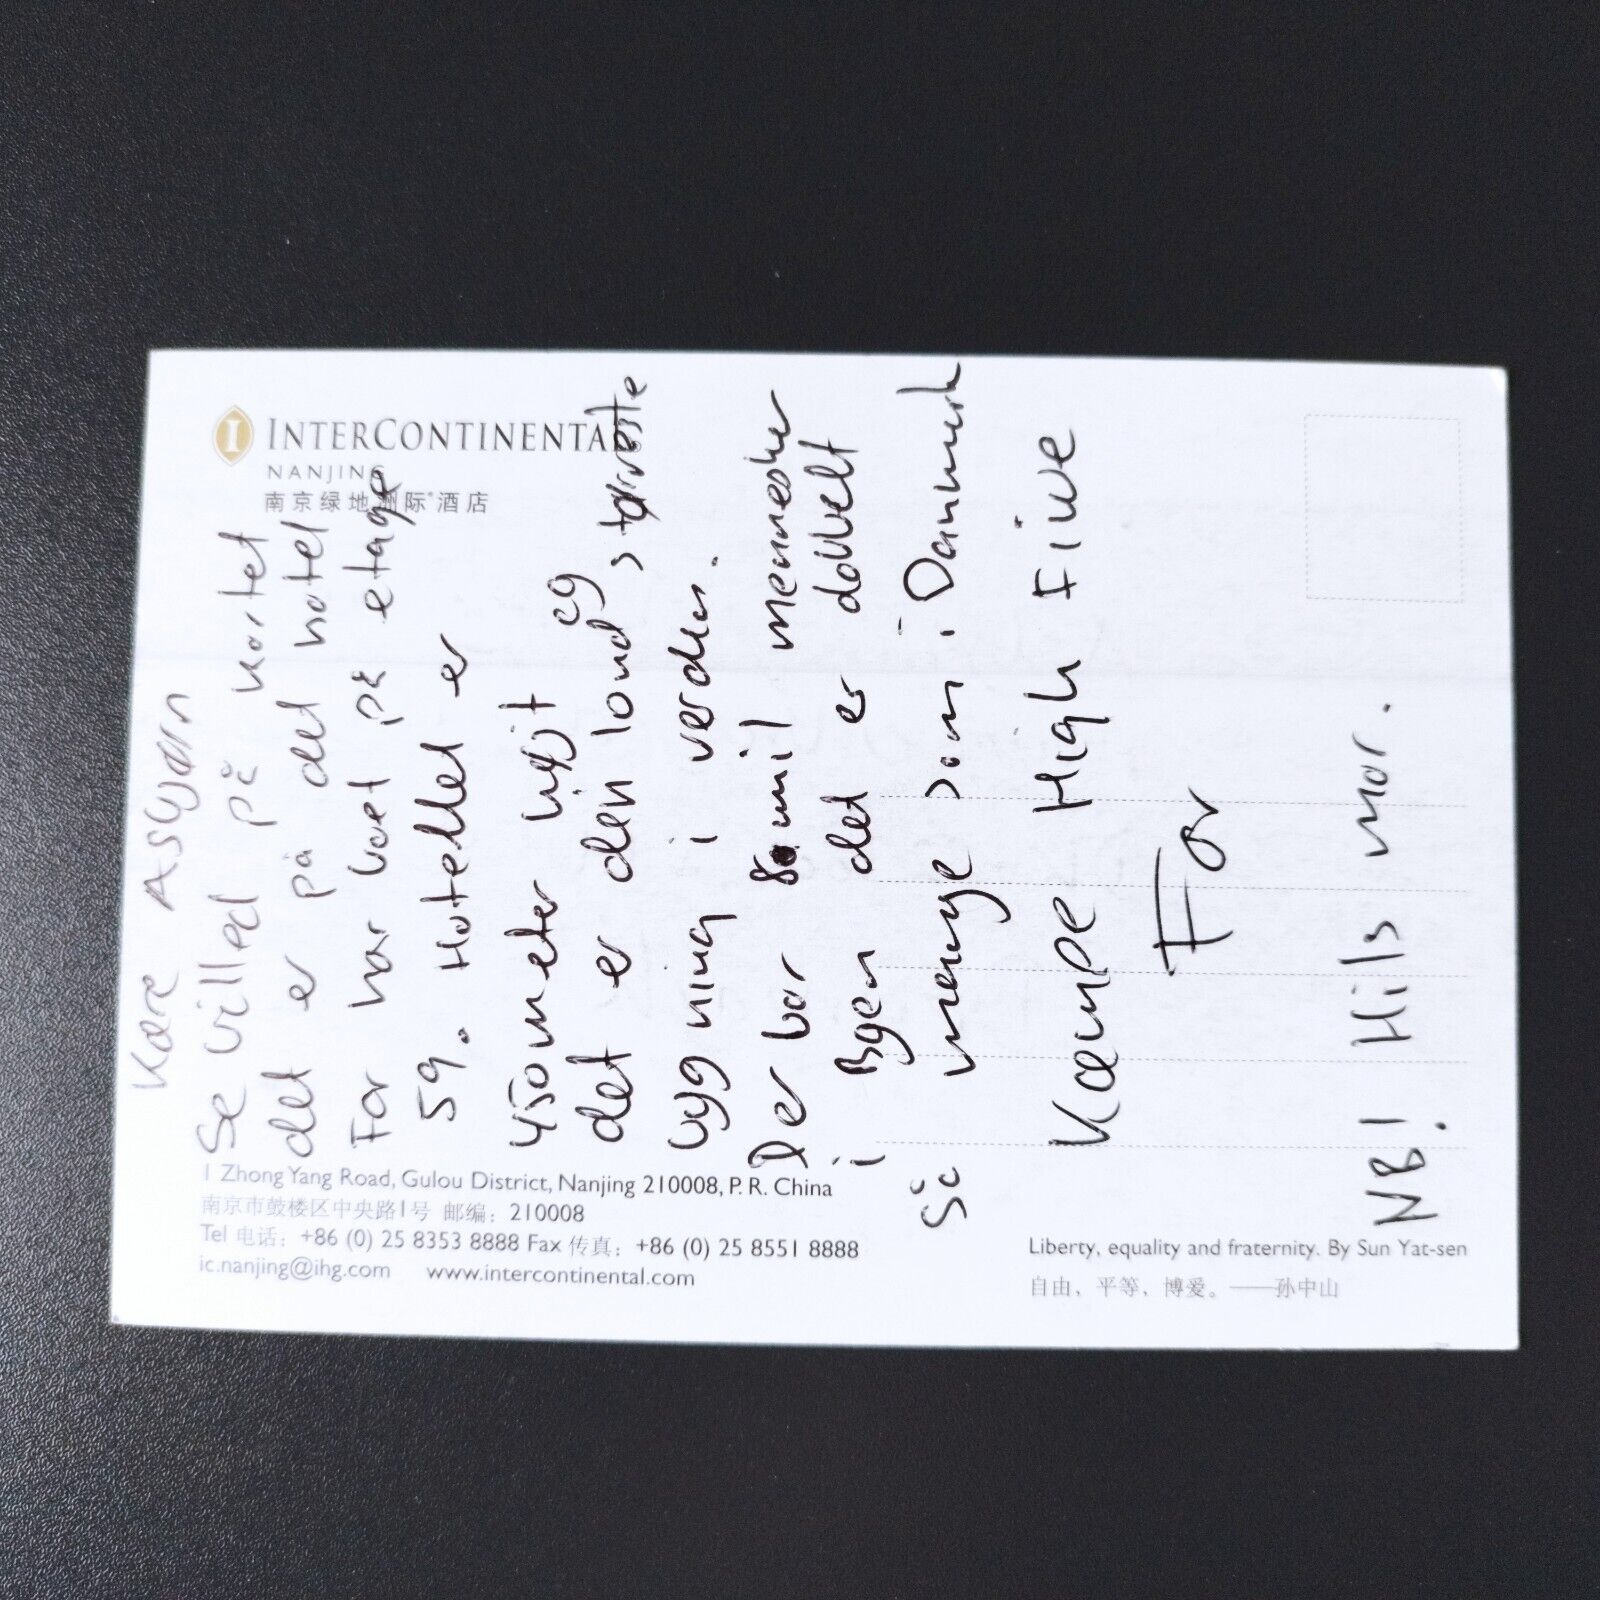 INTERCONTINENTAL
NANJING
南京绿地洲际®酒店
Kære Asbjørn
Se billed på kortet
det er på det hotel
Far har boet på etage
59. Hotellet er
450 meter højt og
det er den 7ond største
bygning i verden.
Der bor 8 mil mennesker
i Byen det er dobbelt
så mange som i Danmark
Kæmpe High Five
Far
NB! Hils mor.
1 Zhong Yang Road, Gulou District, Nanjing 210008, P. R. China
南京市鼓楼区中央路1号 邮编：210008
Tel 电话：+86 (0) 25 8353 8888 Fax 传真：+86 (0) 25 8551 8888
ic.nanjing@ihg.com www.intercontinental.com
Liberty, equality and fraternity. By Sun Yat-sen
自由、平等、博爱。——孙中山